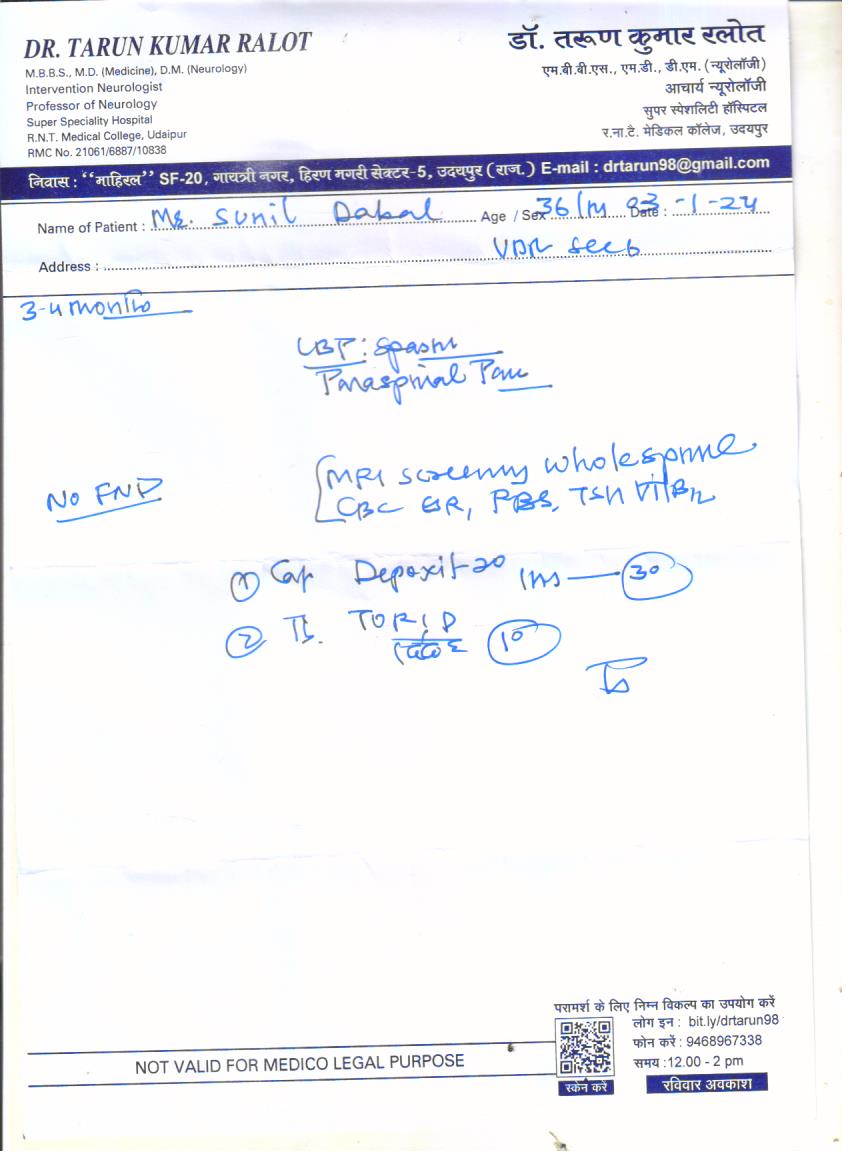 DR. TARUN KUMAR RALOT
M.B.B.S., M.D. (Medicine), D.M. (Neurology)
Intervention Neurologist
Professor of Neurology
Super Speciality Hospital
R.N.T. Medical College, Udaipur
RMC No. 21061/6887/10838
डॉ. तरूण कुमार रलोत
एम.बी.बी.एस., एम.डी., डी.एम. (न्यूरोलॉजी)
आचार्य न्यूरोलॉजी
सुपर स्पेशलिटी हॉस्पिटल
र.ना.टै. मेडिकल कॉलेज, उदयपुर
निवास : "माहिरल" SF-20, गायत्री नगर, हिरण मगरी सेक्टर-5, उदयपुर (राज.) E-mail : drtarun98@gmail.com
Name of Patient : Mr. Sunil Age / Sex 36/M Date : -1-24
Address :
3-4 months
LBP :
Paraspinal
MRI screening whole spine
NO FND
CBC TSH Vit B12
① Cap 20 — 30
② 10
परामर्श के लिए निम्न विकल्प का उपयोग करें
लोग इन : bit.ly/drtarun98
फोन करें : 9468967338
समय :12.00 - 2 pm
स्कैन करें
रविवार अवकाश
NOT VALID FOR MEDICO LEGAL PURPOSE